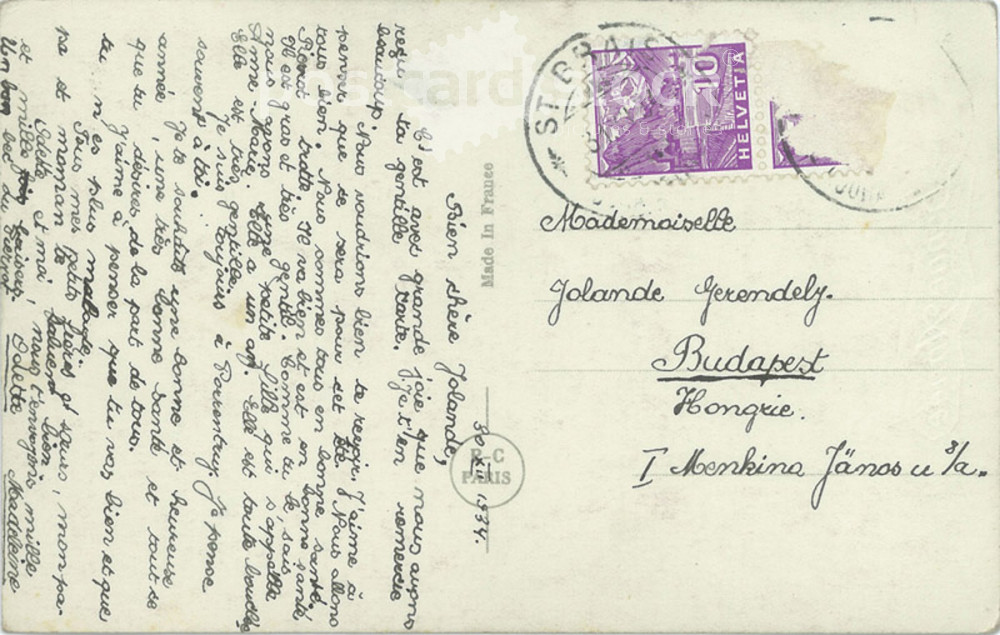 30 XII 1934.
Bien chère Jolande,
C'est avec grande joie que nous avons
reçu ta gentille carte. Je t'en remercie
beaucoup. Nous voudrions bien te revoir. J'aime à
penser que ce sera pour cet été. Nous allons
tous bien. Nous sommes tous en bonne santé.
Pierrot trotte. Il va bien et est en bonne santé
Il est gras et très gentil. Comme tu le sais
nous avons une petite fille qui s'appelle
Anne Marie. Elle a un an. Elle est toute bouclée
Elle est très gentille.
Je suis toujours à Porrentruy. Je pense
souvent à toi.
Je te souhaite une bonne et heureuse
année, une très bonne santé et tout ce
que tu désires de la part de tous.
J'aime à penser que tu vas bien et que
tu n'es plus malade.
Tous mes petits frères et sœurs, mon pa-
pa et maman te saluent bien
Odette et moi, nous t'envoyons mille
et mille baisers.
Un bon bec du Pierrot
Odette Madeleine
Made In France
R-C
PARIS
ST-BRAIS
JURA
10
HELVETIA
Mademoiselle
Jolande Gerendely.
Budapest
Hongrie.
I Menkina János u 3/a.
postcards